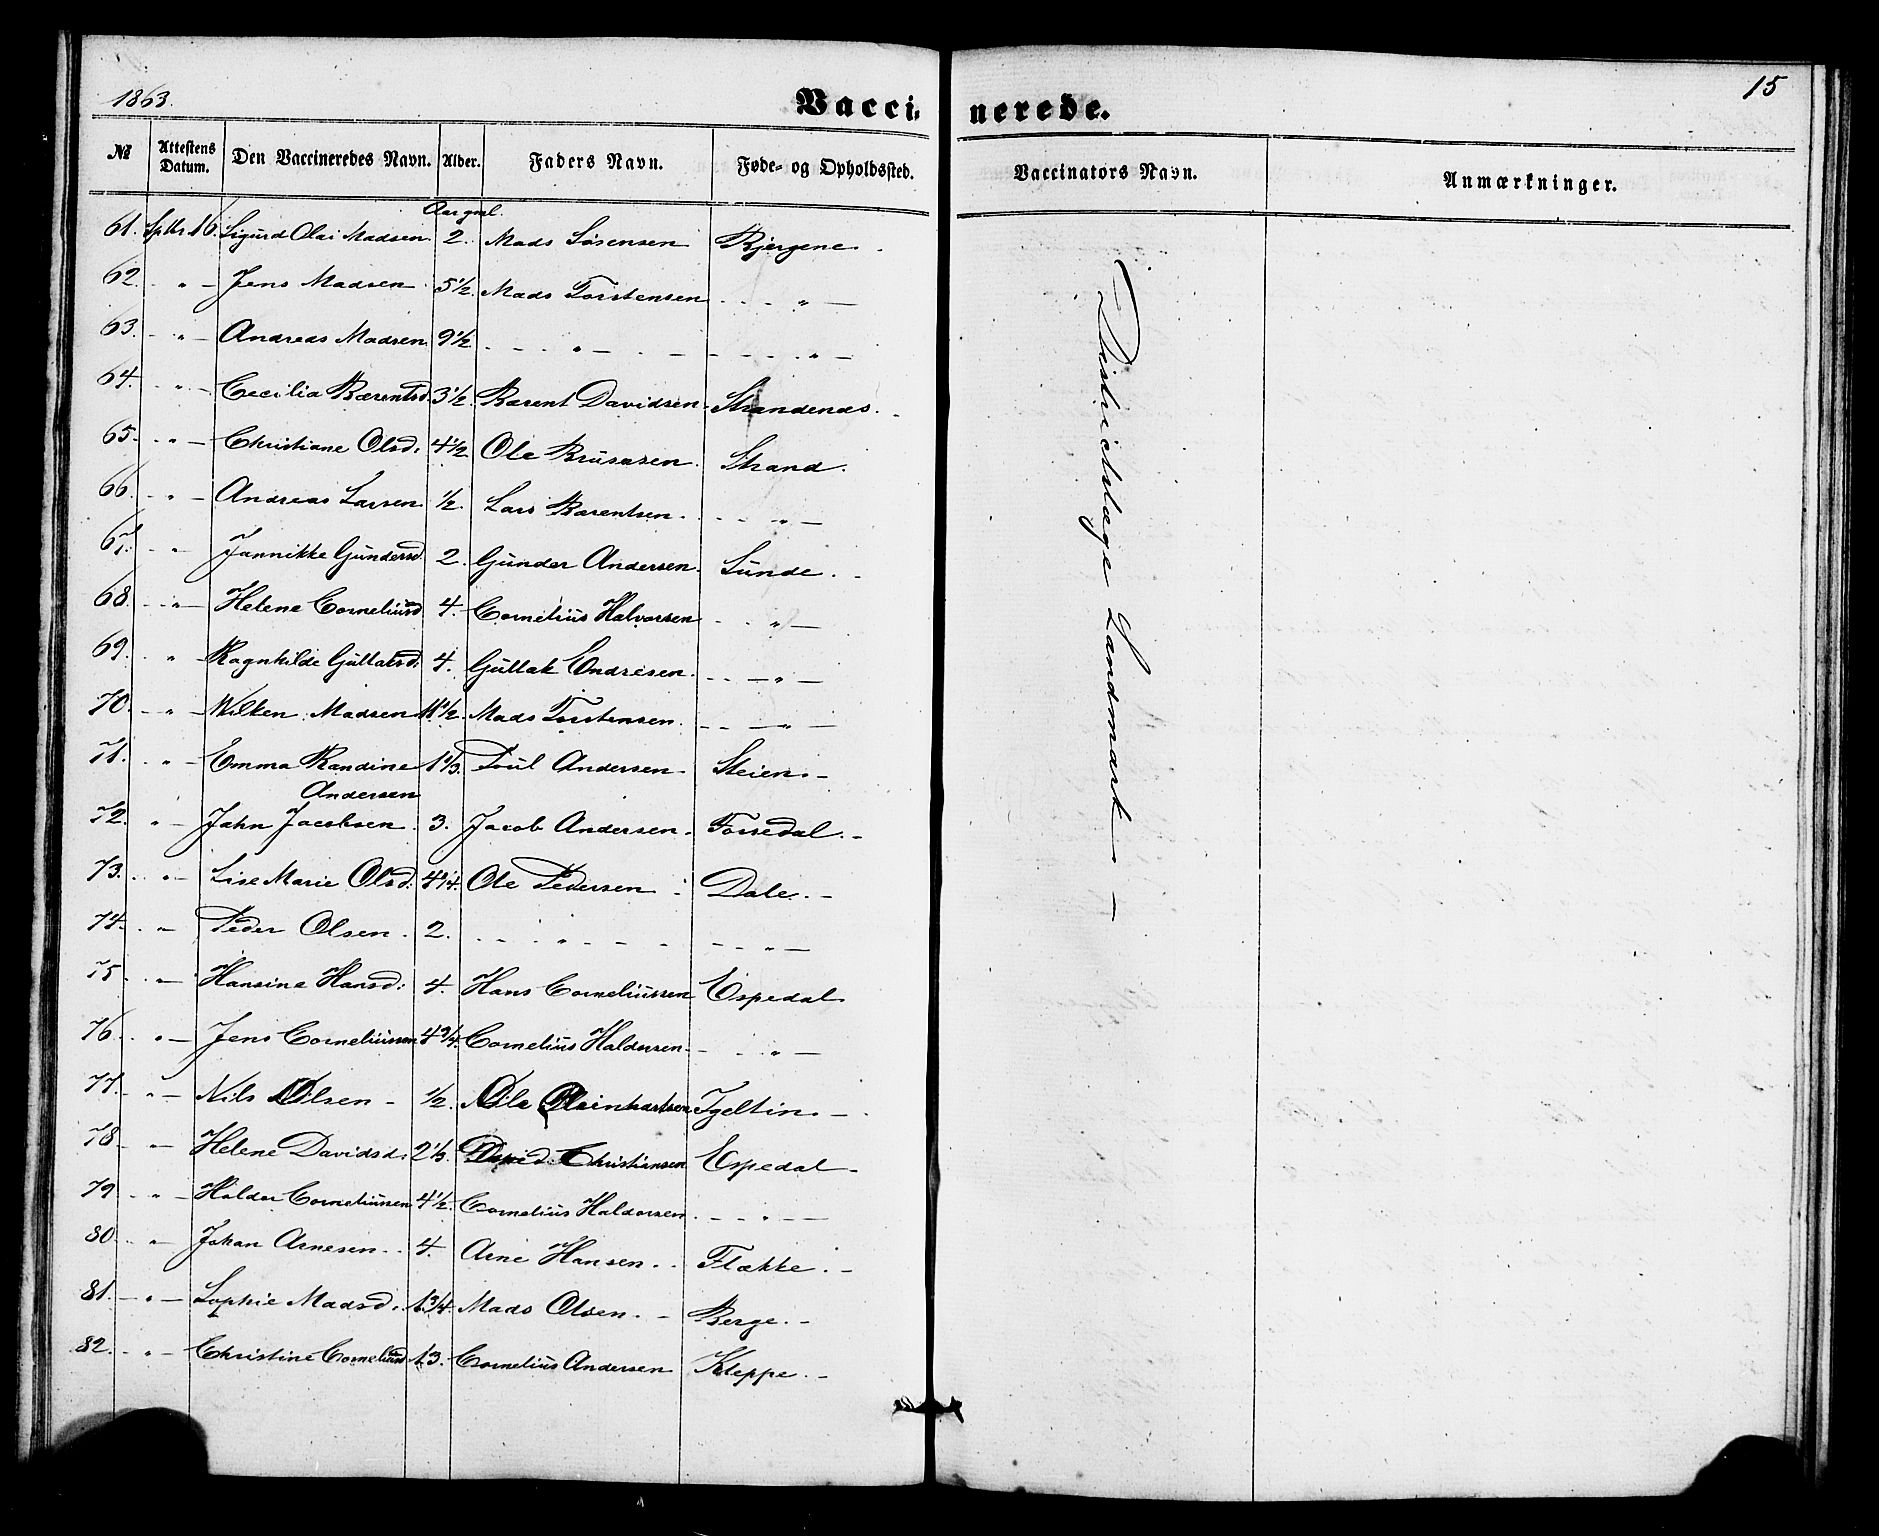 1863.
Vacci-
nerede.
15
№ Attestens Datum. Den Vaccineredes Navn. Alder. Faders Navn. Føde- og Opholdssted. Vaccinators Navn. Anmærkninger.
Aar gml.
61. Sptbr. 16. Sigurd Olai Madsen 2. Mads Sørensen Bjergene.
62. - " - Jens Madsen 5 1/2. Mads Torstensen - - " -
63. - " - Andreas Madsen 9 1/2. - - " - - - " -
64. - " - Cecilia Bærentsd. 3 1/2. Bærent Davidsen Strandenæs. -
65. - " - Christiane Olsd. 4 1/2 Ole Brusesen Strand.
66. - " - Andreas Larsen 1/2. Lars Bærentsen. - - " -
67. - " Jannikke Gundersd. 2. Gunder Andersen. Sunde. -
68. - " - Helene Corneliusd. 4. Cornelius Halvorsen - - " -
69. " - Ragnhilde Gullaksd. 4. Gullak Endresen. - - " -
70. - " - Wilken Madsen 11 1/2. Mads Torstensen. - - " -
71. " - Emma Randine 1 1/3. Poul Andersen - Steien. -
Andersen
72. " - Jahn Jacobsen 3. Jacob Andersen - Fossedal. -
73. - " - Lise Marie Olsd. 4 1/4. Ole Pedersen Dale. -
74. - " - Peder Olsen. 2. - - " - - - - " -
75 - " - Hansine Hansd: 4. Hans Corneliussen Espedal
76. " - Jens Corneliussen 4 3/4. Cornelius Haldorsen - - " -
77. - " - Nils Olsen - 1/2. Ole Reinhartsen Tgeltin. -
78. - " - Helene Davidsd. 2 1/3. David Christiansen Espedal -
79. - " - Haldor Corneliussen 4 1/2. Cornelius Haldorsen. - - " -
80. - " - Johan Arnesen. - 4. Arne Hansen. - Flække. -
81. - " - Sophie Madsd. 1 3/4. Mads Olsen. - Berge. -
82. - " - Christine Corneliusd 13. Cornelius Andersen Kleppe. -
Districtslæge Landmark -